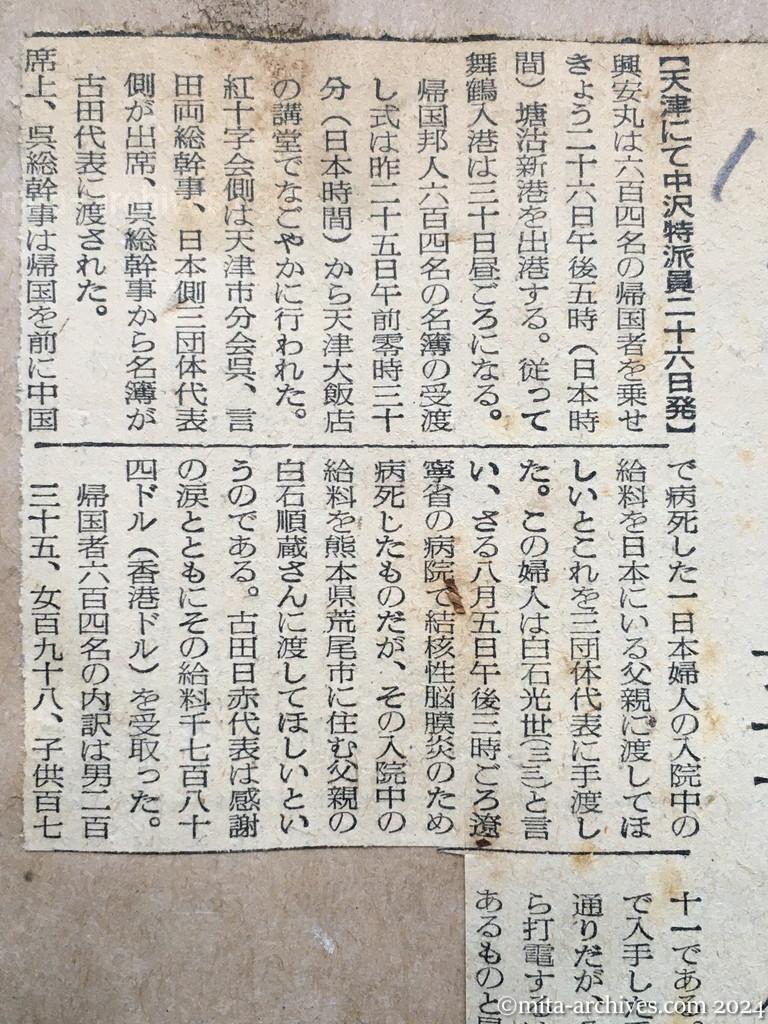 【天津にて中沢特派員二十六日発】
興安丸は六百四名の帰国者を乗せ
きょう二十六日午後五時（日本時
間）塘沽新港を出港する。従って
舞鶴入港は三十日昼ごろになる。
帰国邦人六百四名の名簿の受渡
し式は昨二十五日午前零時三十
分（日本時間）から天津大飯店
の講堂でなごやかに行われた。
紅十字会側は天津市分会呉、言
田両総幹事、日本側三団体代表
側が出席、呉総幹事から名簿が
古田代表に渡された。
席上、呉総幹事は帰国を前に中国
で病死した一日本婦人の入院中の
給料を日本にいる父親に渡してほ
しいとこれを三団体代表に手渡し
た。この婦人は白石光世（三三）と言
い、さる八月五日午後二時ごろ遼
寧省の病院で結核性脳膜炎のため
病死したものだが、その入院中の
給料を熊本県荒尾市に住む父親の
白石順蔵さんに渡してほしいとい
うのである。古田日赤代表は感謝
の涙とともにその給料千七百八十
四ドル（香港ドル）を受取った。
帰国者六百四名の内訳は男二百
三十五、女百九十八、子供百七
十一である。
で入手した
通りだが、
ら打電する
あるものと
©mita-archives.com 2024